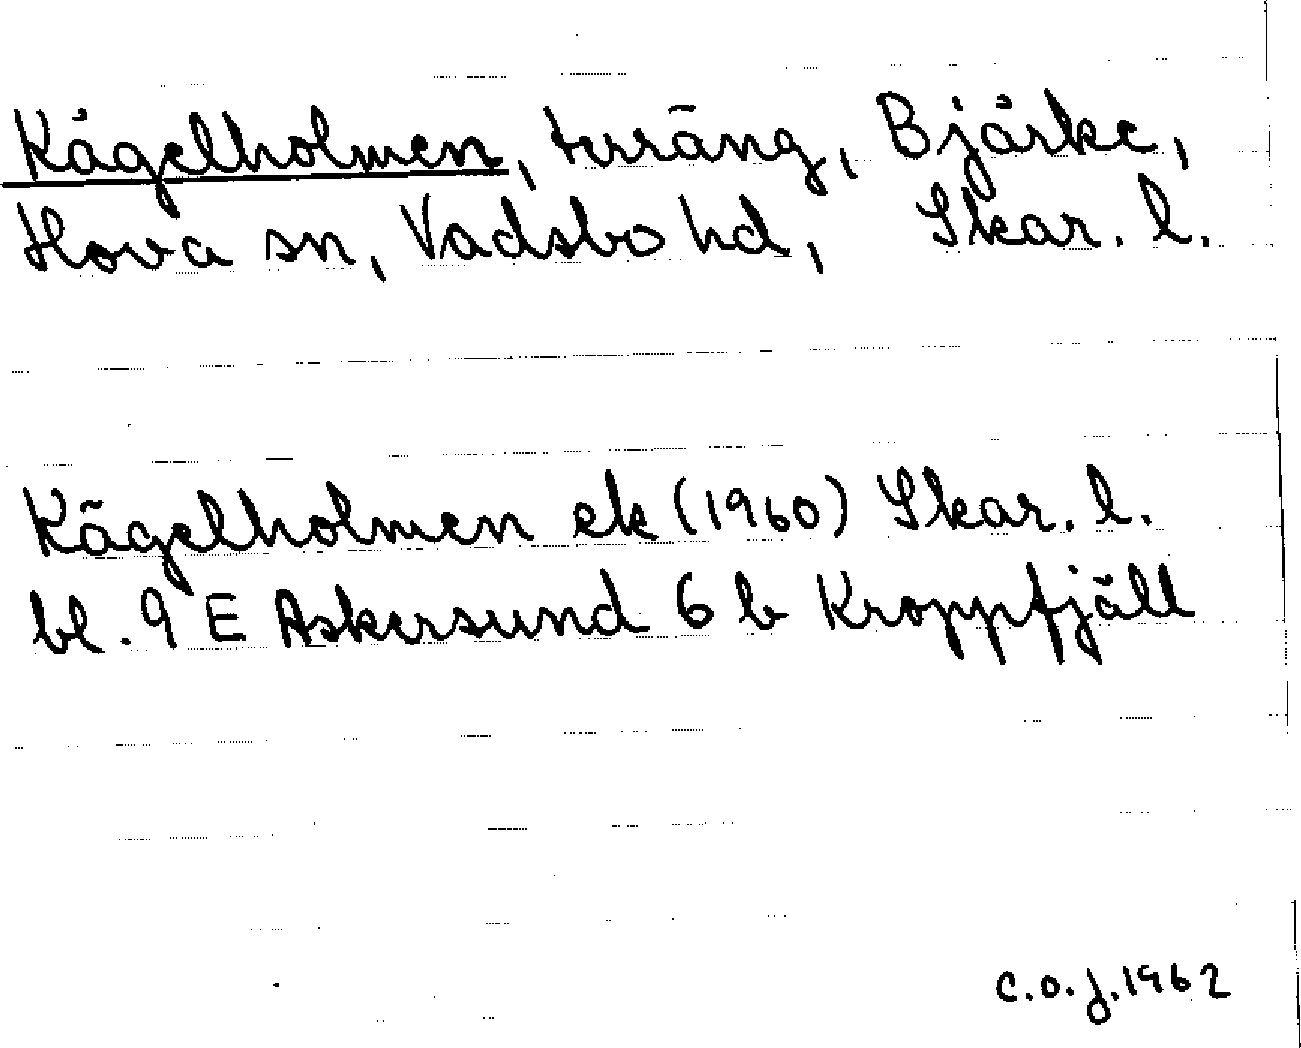 Kågelholmen, terräng, Bjärke,
Hova sn, Vadsbo hd, Skar. l.
Kägelholmen ek (1960) Skar. l.
bl. 9 E Askersund 6 b Kroppfjäll
C.O.J. 1962